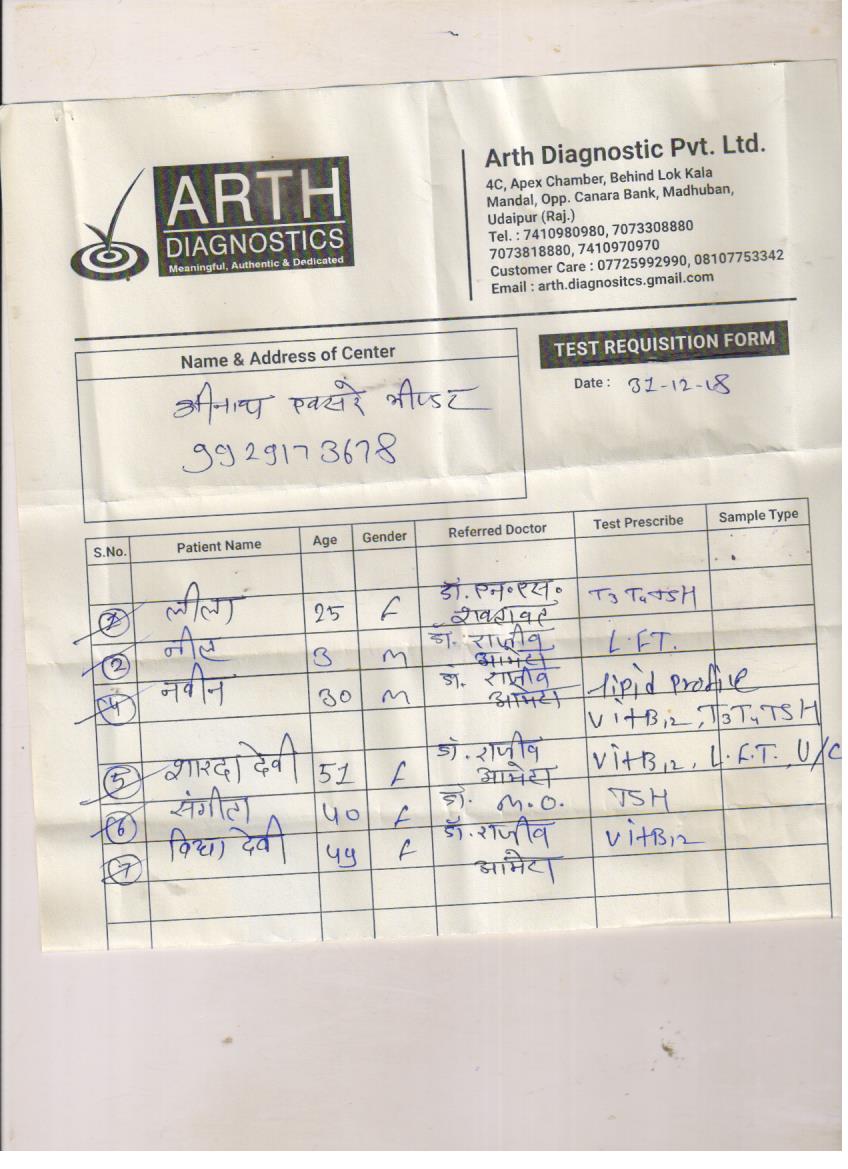 ARTH
DIAGNOSTICS
Meaningful, Authentic & Dedicated
Arth Diagnostic Pvt. Ltd.
4C, Apex Chamber, Behind Lok Kala
Mandal, Opp. Canara Bank, Madhuban,
Udaipur (Raj.)
Tel. : 7410980980, 7073308880
7073818880, 7410970970
Customer Care : 07725992990, 08107753342
Email : arth.diagnositcs.gmail.com
Name & Address of Center
श्रीनाथ एक्सरे भीण्डर
9929173678
TEST REQUISITION FORM
Date : 31-12-18
S.No. Patient Name Age Gender Referred Doctor Test Prescribe Sample Type
लीला 25 F डॉ. एन.एस. T3 T4 TSH
2 नील 3 M डॉ. राजीव L.F.T.
आमेटा
4 नवीन 30 M डॉ. राजीव lipid profile
आमेटा VitB12, T3 T4 TSH
5 शारदा देवी 51 F डॉ. राजीव VitB12, L.F.T., U/C
आमेटा
6 संगीता 40 F डॉ. M.O. TSH
7 विद्या देवी 49 F डॉ. राजीव VitB12
आमेटा